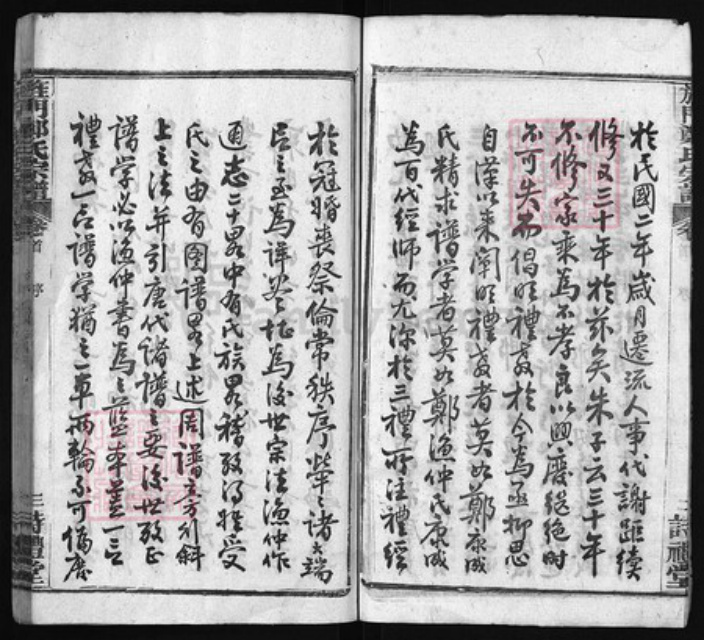 於民國二年歲月遷流人事代謝距續
修又三十年於茲矣朱子云三十年
不修家乘為不孝良以興廢繼絕時
不可失而倡明禮教於今為亟抑思
自漢以來闡明禮教者莫如鄭康成
氏精求譜學者莫如鄭漁仲氏康成
為百代經師而尤深於三禮所注禮經
於冠婚喪祭倫常秩序犖犖諸大端
言之至為詳 為後世宗法漁仲作
通志二十畧中有氏族畧稽攷得姓受
氏之由有圖譜畧上述周譜旁行斜
上之法并引唐代諸譜之要後世攷正
譜學必以漁仲書為之藍本蓋一言
禮教一言譜學猶之一車兩輪不可偏廢
旌門鄭氏宗譜
卷首
序
三
詩禮堂